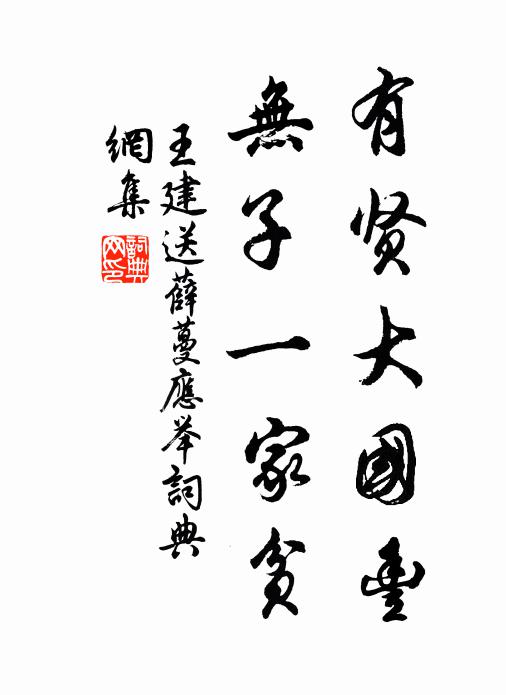 有贤大國豐
無子一家貧
王建送薛蔓應举詞典
網集
詞典網印